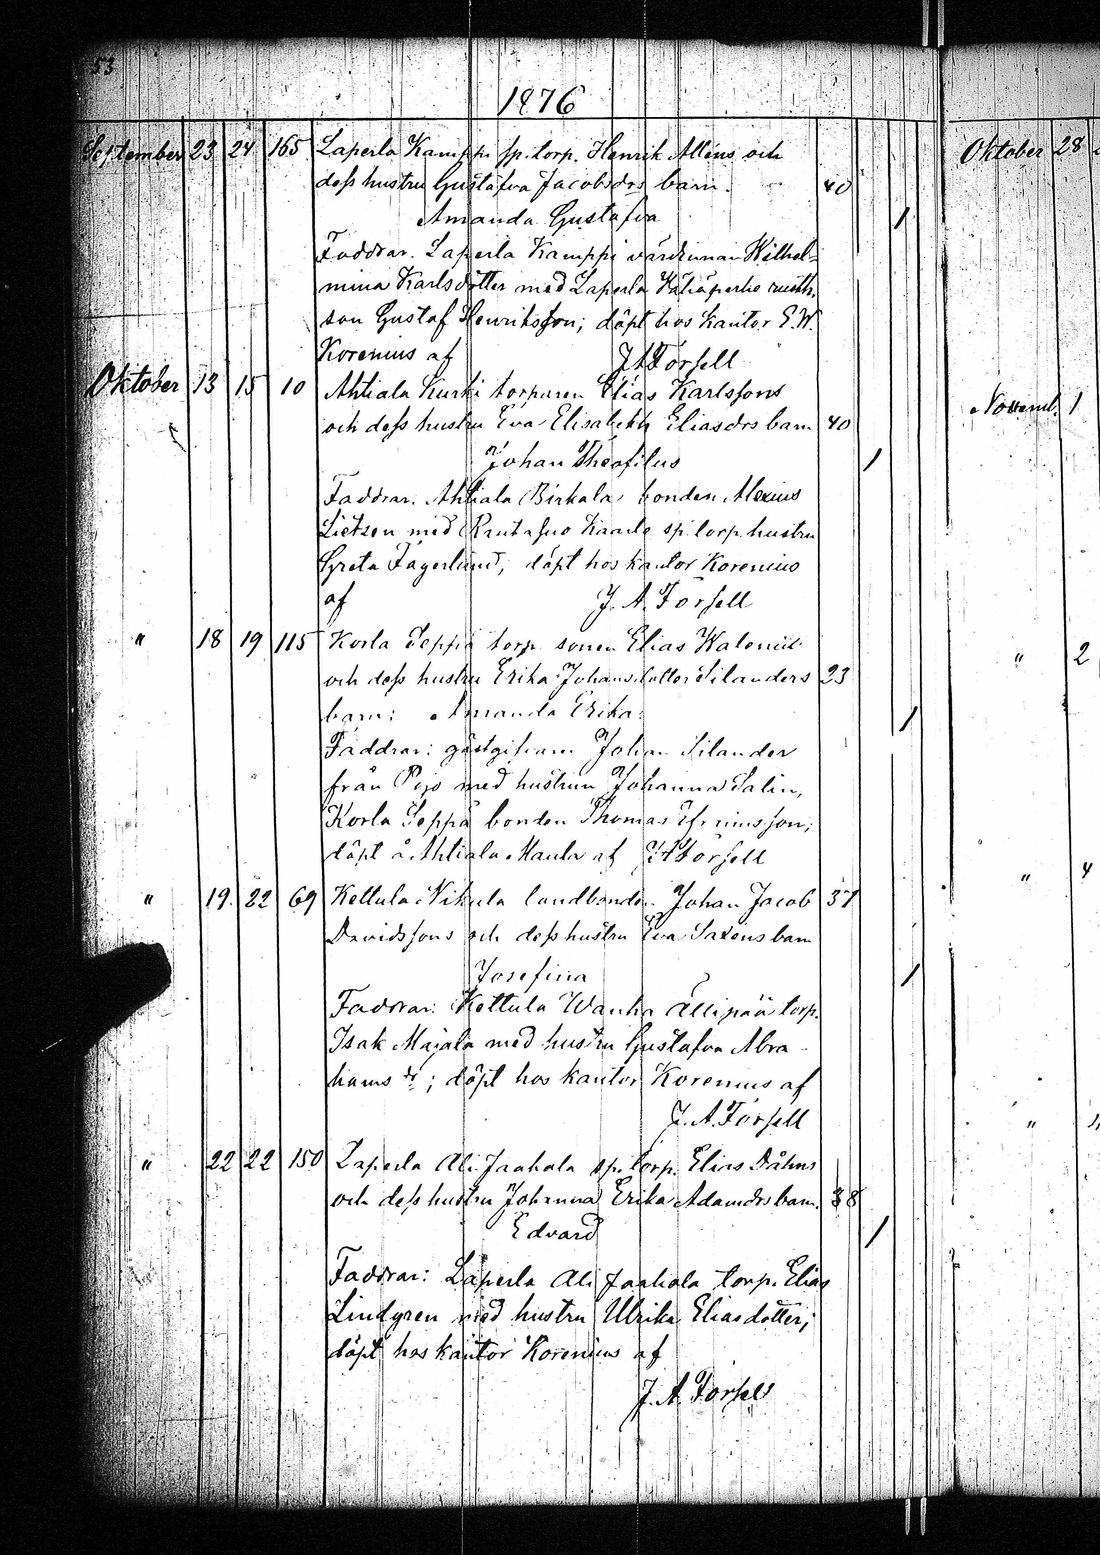 53
1876
September 23 24 165 Laperla Kamppi sp. torp. Henrik Alléns och
dess hustru Gustafva Jacobsdrs barn. 40
Amanda Gustafva /
Faddrar. Laperla Kamppi värdinnan Wilhel-
mina Karlsdotter med Laperla rusth.
son Gustaf Henriksson; döpt hos kantor E. W.
Korenius af J A Forsell
Oktober 13 15 10 Ahtiala Kurki torparen Elias Karlssons
och dess hustru Eva Elisabeth Eliasdrs barn 40
Johan Theofilus /
Faddrar. Ahtiala Birkala bonden Alexius
Lietzen med Rautasuo Kaarlo sp. torp. hustru
Greta Fagerlund; döpt hos kantor Korenius
af J. A. Forsell
" 18 19 115 Korla Seppä torp. sonen Elias
och dess hustru Erika Johansdotter Silanders 23
barn: Amanda Erika. /
Faddrar: gästgifvaren Johan Silander
från Pojo med hustrun Johanna Salin,
Korla Seppä bonden Thomas Efraimsson;
döpt å Ahtiala Maula af J A Forsell
" 19. 22 69 Kettula Nikula landbonden Johan Jacob 37
Davidssons och dess hustru Eva Saxéns barn
Josefina /
Faddrar: Kettula Wanha Ällipää torp.
Isak Majala med hustru Gustafva Abra-
hams dr; döpt hos kantor Korenius af
J. A. Forsell
" 22 22 150 Laperla Ali Jaakola sp. torp. Elias Dåhns
och dess hustru Johanna Erika Adamdrs barn. 38
Edvard /
Faddrar: Laperla Ali Jaakola torp. Elias
Lindgren med hustru Ulrika Eliasdotter;
döpt hos kantor Korenius af
J. A. Forsell
Oktober 28
Novemb. 1
" 2
" 4
"